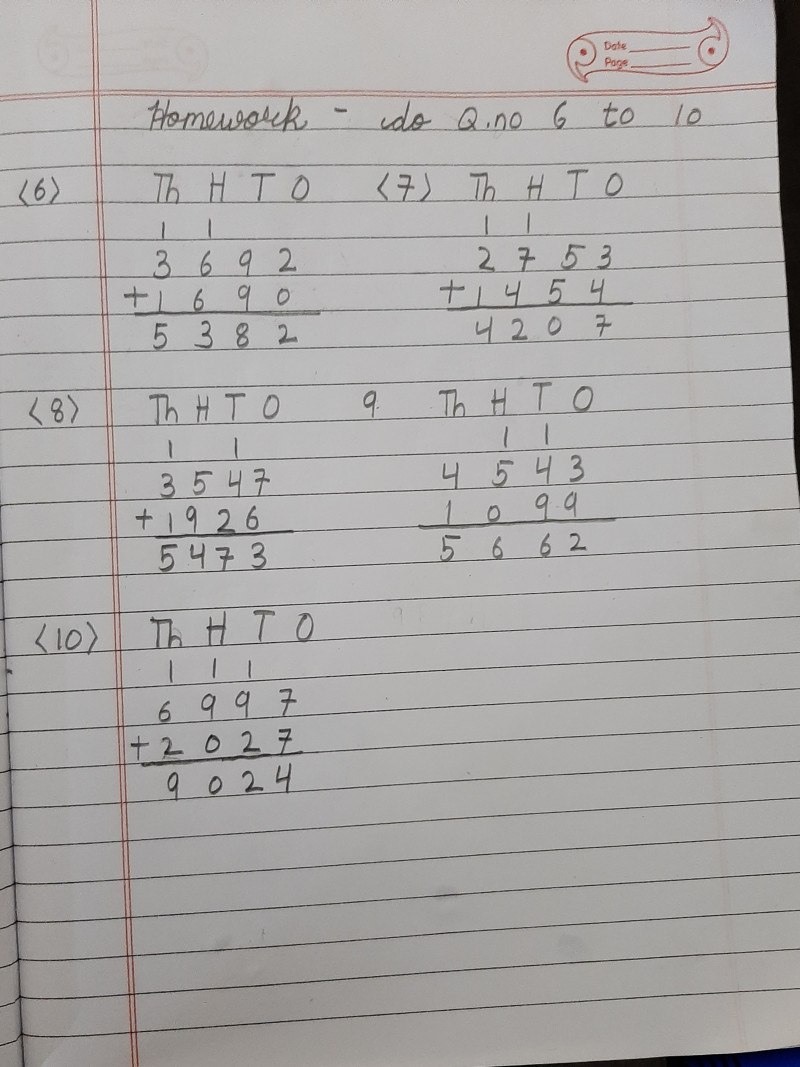 Date
Page
Homework - do Q.no 6 to 10
(6) Th H T O (7) Th H T O
1 1 1 1
3 6 9 2 2 7 5 3
+ 1 6 9 0 + 1 4 5 4
5 3 8 2 4 2 0 7
(8) Th H T O 9. Th H T O
1 1 1 1
3 5 4 7 4 5 4 3
+ 1 9 2 6 1 0 9 9
5 4 7 3 5 6 6 2
(10) Th H T O
1 1 1
6 9 9 7
+ 2 0 2 7
9 0 2 4